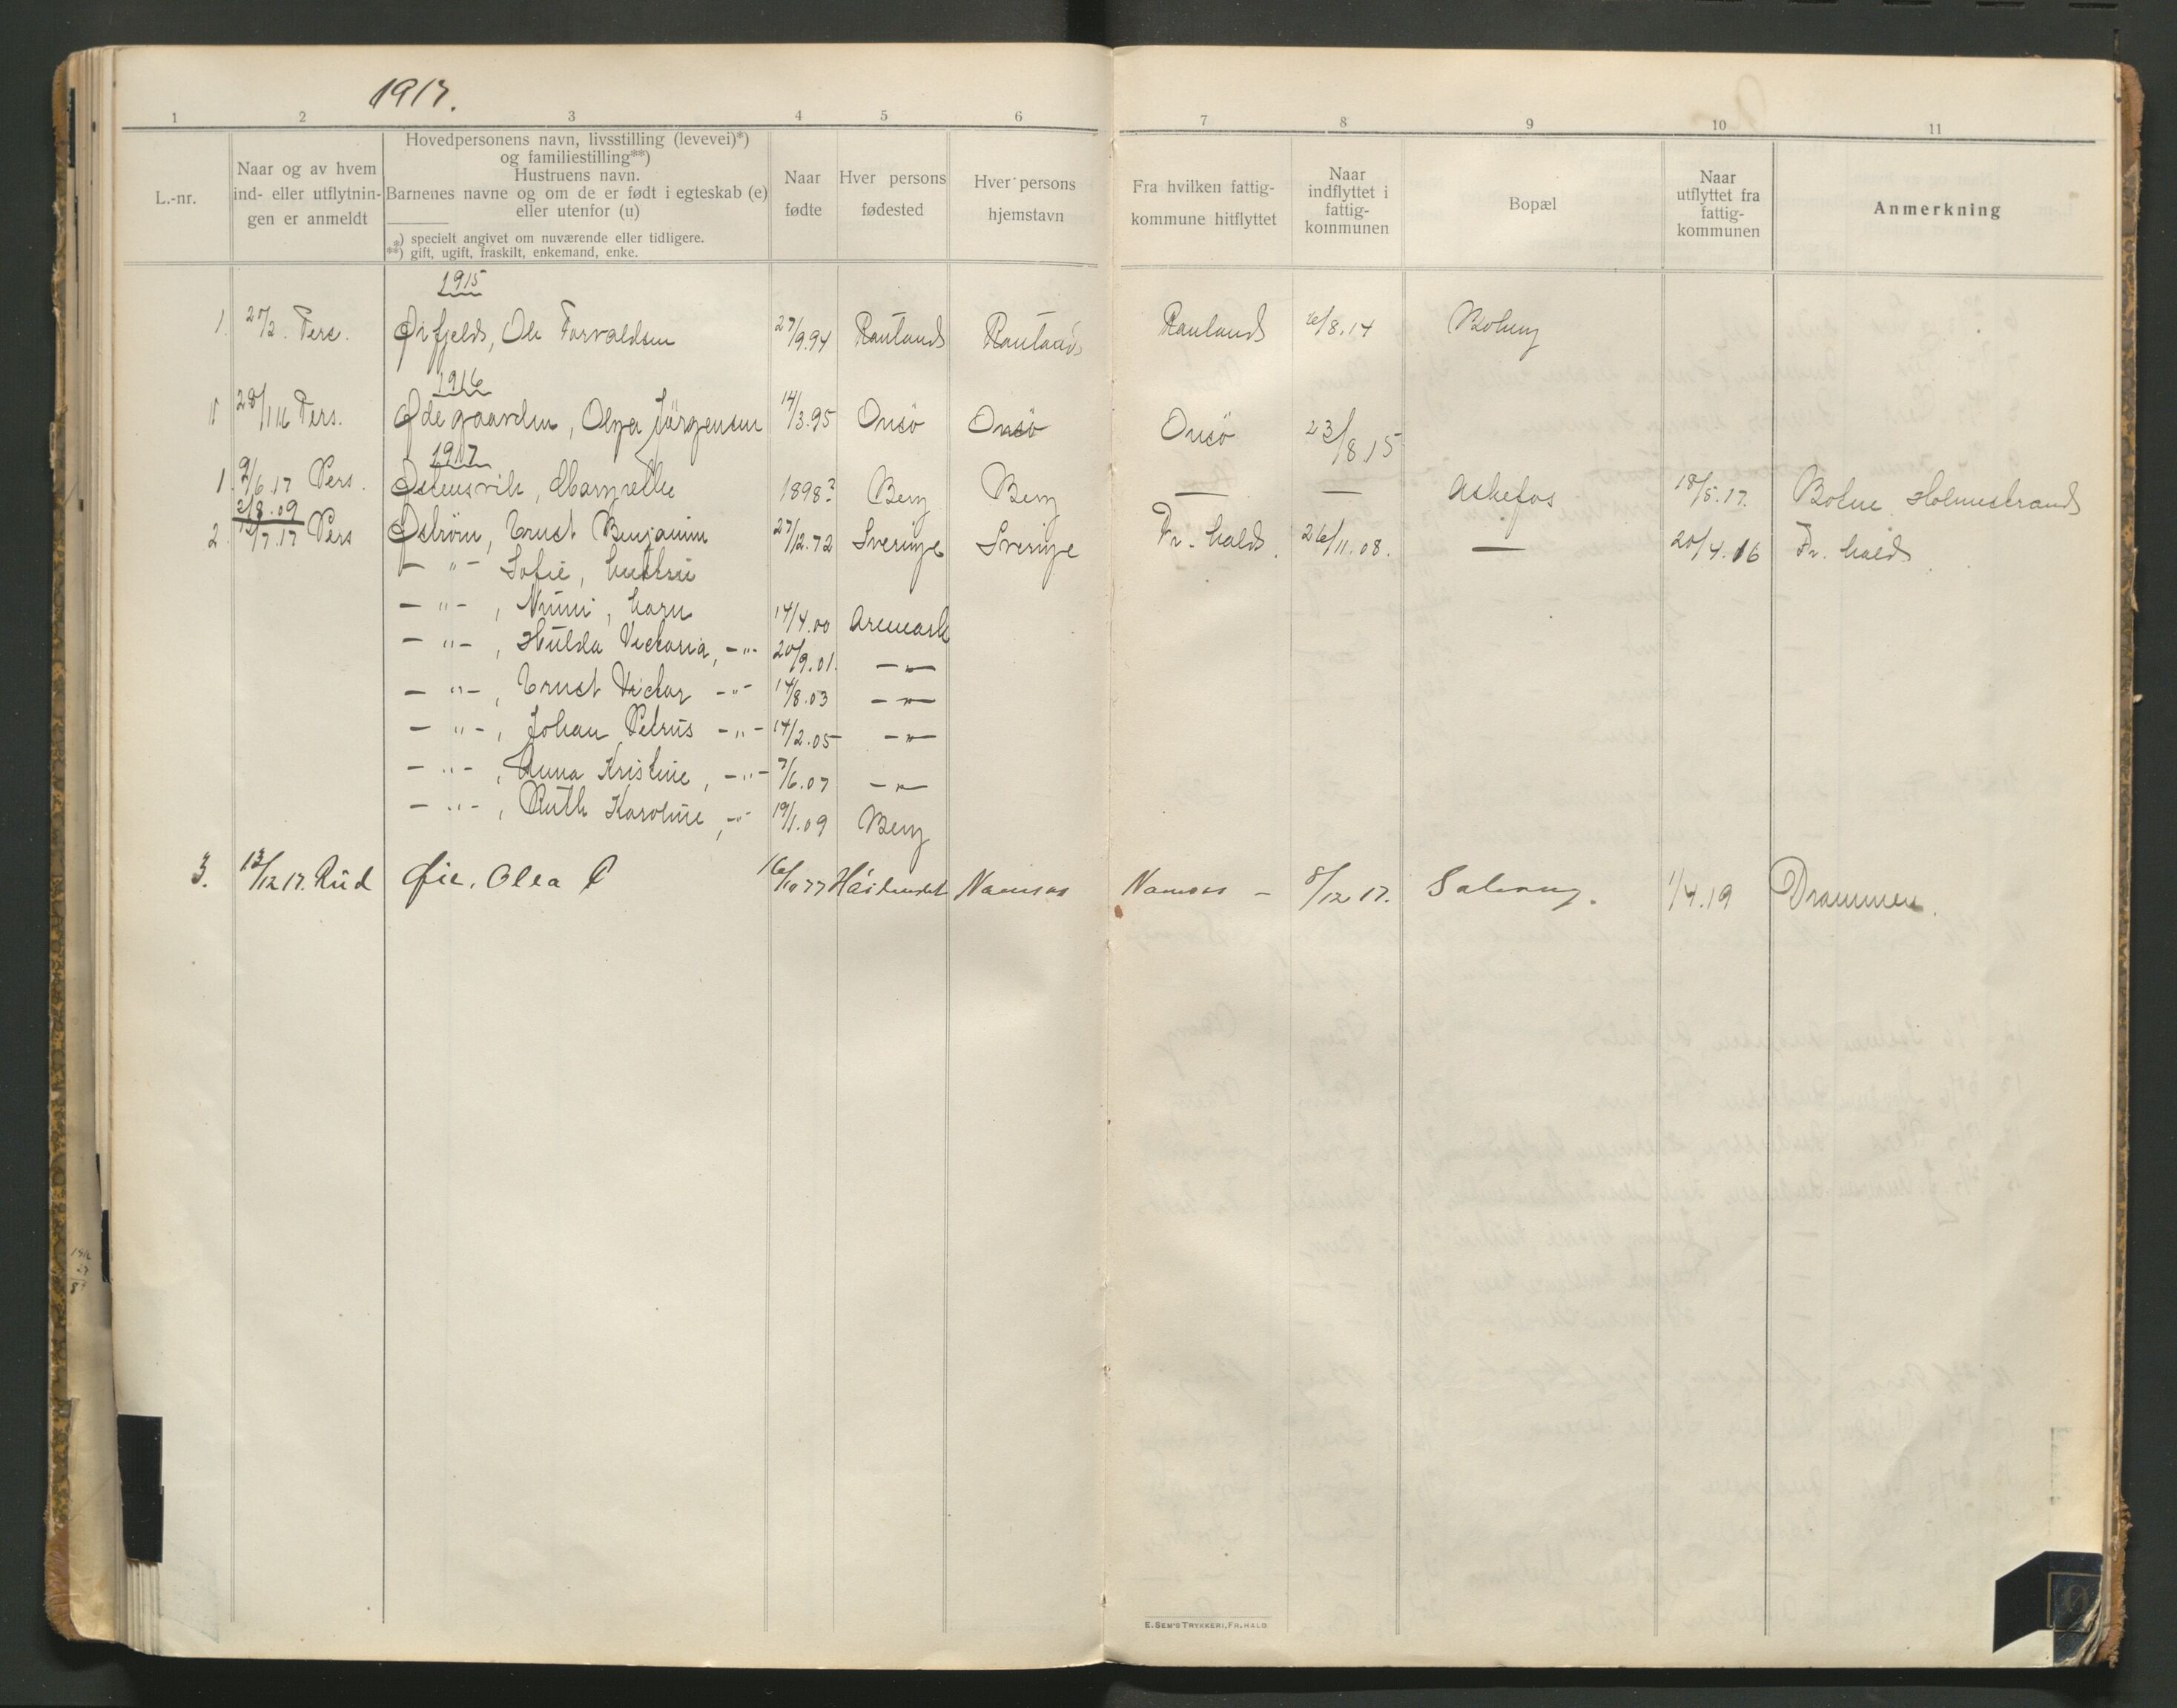 1917.
1 2 3 4 5 6 7 8 9 10 11
L.-nr.
Naar og av hvem
ind- eller utflytnin-
gen er anmeldt
Hovedpersonens navn, livsstilling (levevei)*)
og familiestilling**)
Hustruens navn.
Barnenes navne og om de er født i egteskab (e)
eller utenfor (u)
*) specielt angivet om nuværende eller tidligere.
**) gift, ugift, fraskilt, enkemand, enke.
Naar
fødte
Hver persons
fødested
Hver persons
hjemstavn
Fra hvilken fattig-
kommune hitflyttet
Naar
indflyttet i
fattig-
kommunen
Bopæl
Naar
utflyttet fra
fattig-
kommunen
Anmerkning
1915
1. Pers. Øifjeld, Ole Torvaldsen 27/9.94 Rauland Rauland Rauland /8.14
1916
Pers. Ødegaarden, Olga Jörgensen 14/3.95 Onsö Onsö Onsö 23/8.15
1917
1. 9/6.17 Pers. Østensvik, Margrethe 1898? Berg Berg — — Askefos 18/5.17. Botne Holmestrand
2/8.09
2. 12/7.17 Pers Østrøm, Ernst Benjamin 27/12.72 Sverige Sverige Fr.hald. 26/11.08. — 20/4.16 Fr.hald.
— " — Sofie, hustru
— " —, Nunni, barn 14/4.00 Aremark
— " —, Hulda Victoria, — " — 20/9.01. — " —
— " —, Ernst Victor — " — 14/8.03 — " —
— " —, Johan Petrus — " — 14/2.05 — " —
— " —, Anna Kristine, — " — 7/6.07 — " —
— " —, Ruth Karoline, — " — 19/1.09 Berg
3. 13/12 17. Rud Øie, Olea P 16/10 77 Namsos Namsos — 8/12 17. 1/4.19 Drammen.
E. SEM'S TRYKKERI, FR.HALD
Ø